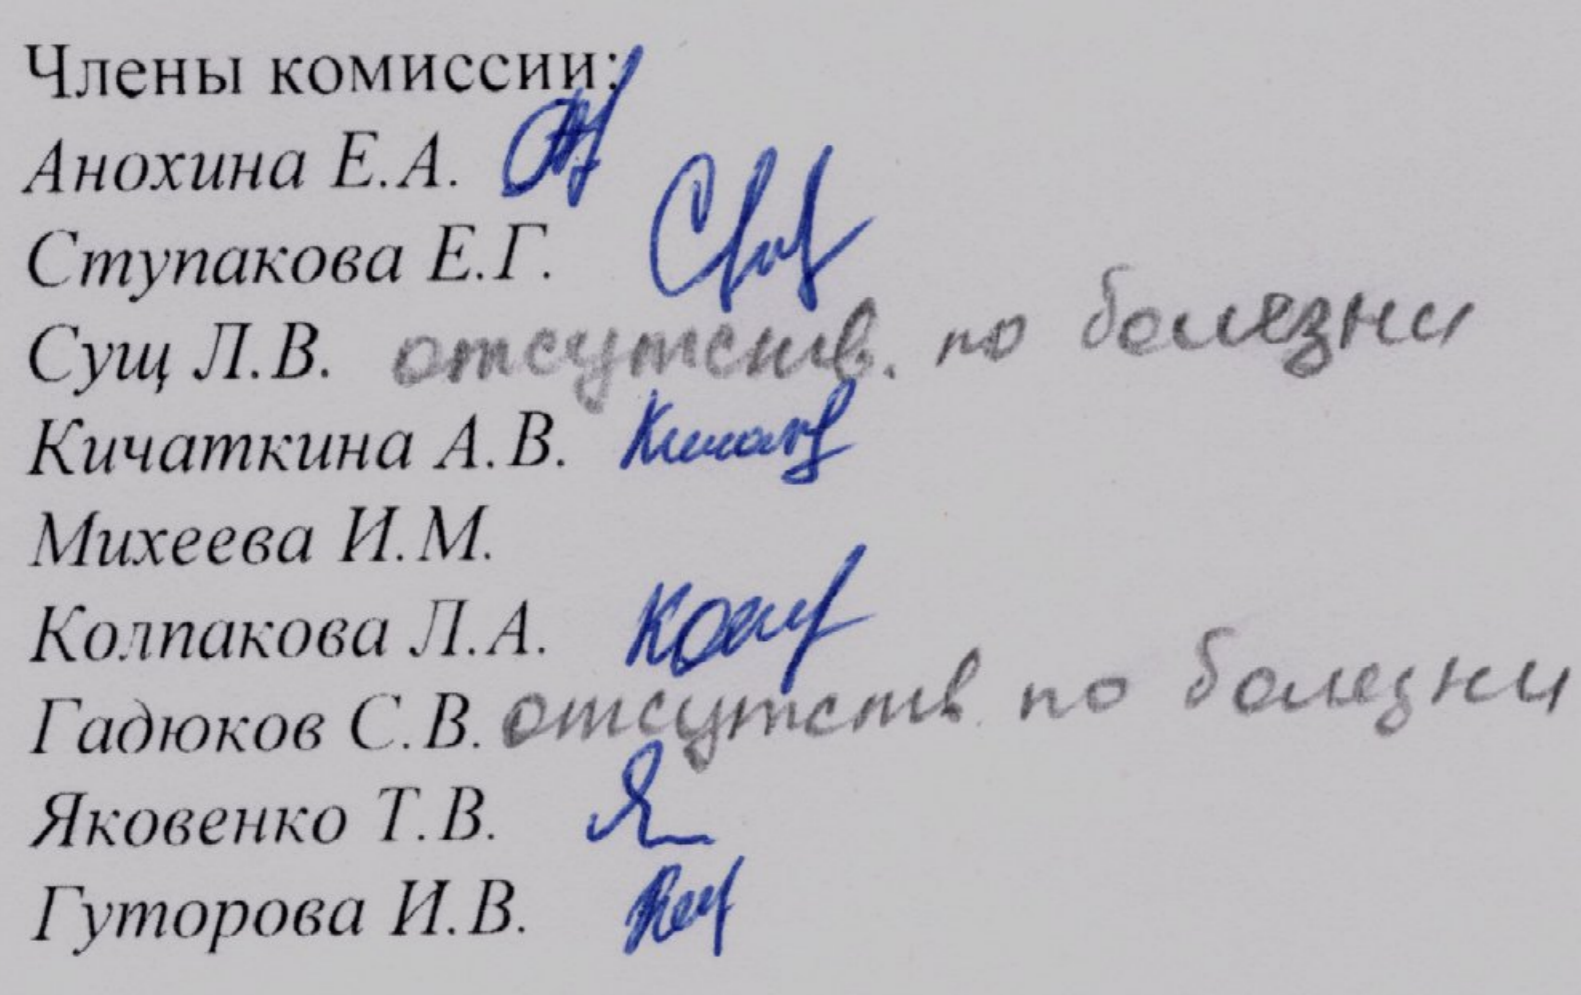 Члены комиссии:
Анохина Е.А.
Ступакова Е.Г.
Сущ Л.В. отсутств. по болезни
Кичаткина А.В.
Михеева И.М.
Колпакова Л.А.
Гадюков С.В. отсутств. по болезни
Яковенко Т.В.
Гуторова И.В.